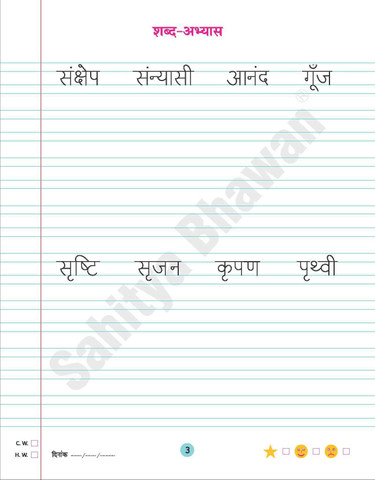 शब्द-अभ्यास
संक्षेप संन्यासी आनंद गूँज
सृष्टि सृजन कृपण पृथ्वी
Sahitya Bhawan®
C. W.
H. W. दिनांक ----/----/------
3